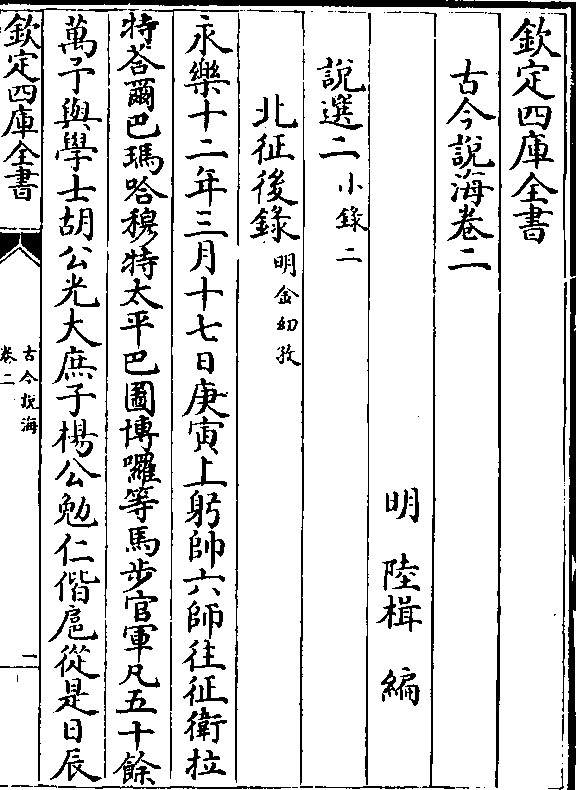 欽定四庫全書
古今說海卷二
明 陸楫 編
說選二小錄二
北征後錄明金幼孜
永樂十二年三月十七日庚寅上躬帥六師往征衛拉
特荅爾巴瑪哈穆特太平巴圖博囉等馬步官軍凡五十餘
萬予與學士胡公光大庶子楊公勉仁偕扈從是日辰
欽定四庫全書
古今說海
卷二
一